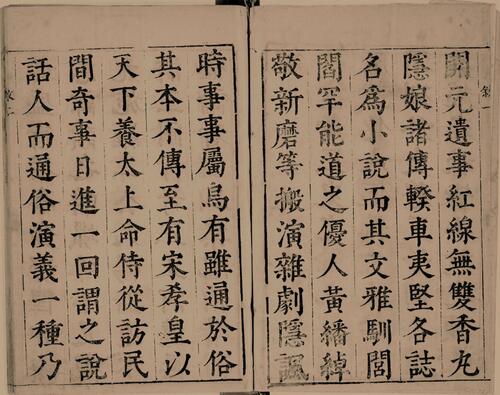 敘一
開元遺事紅線無雙香丸
隱娘諸傳暌車夷堅各誌
名爲小說而其文雅馴閭
閻罕能道之優人黃繙綽
敬新磨等搬演雜劇隱諷
時事事屬烏有雖通於俗
其本不傳至有宋孝皇以
天下養太上命侍從訪民
間奇事日進一回謂之說
話人而通俗演義一種乃